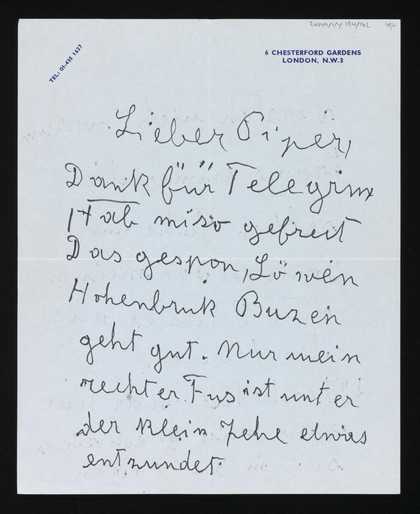 TEL: 01-435 1637
6 CHESTERFORD GARDENS
LONDON, N.W.3
Lieber Piper,
Dank für Telegrim
Hab miso gefreit
Das gespon, Löwen
Hohenbruk Buzen
geht gut. Nur mein
rechter Fus ist unter
der klein Zehe etwas
entzundet.